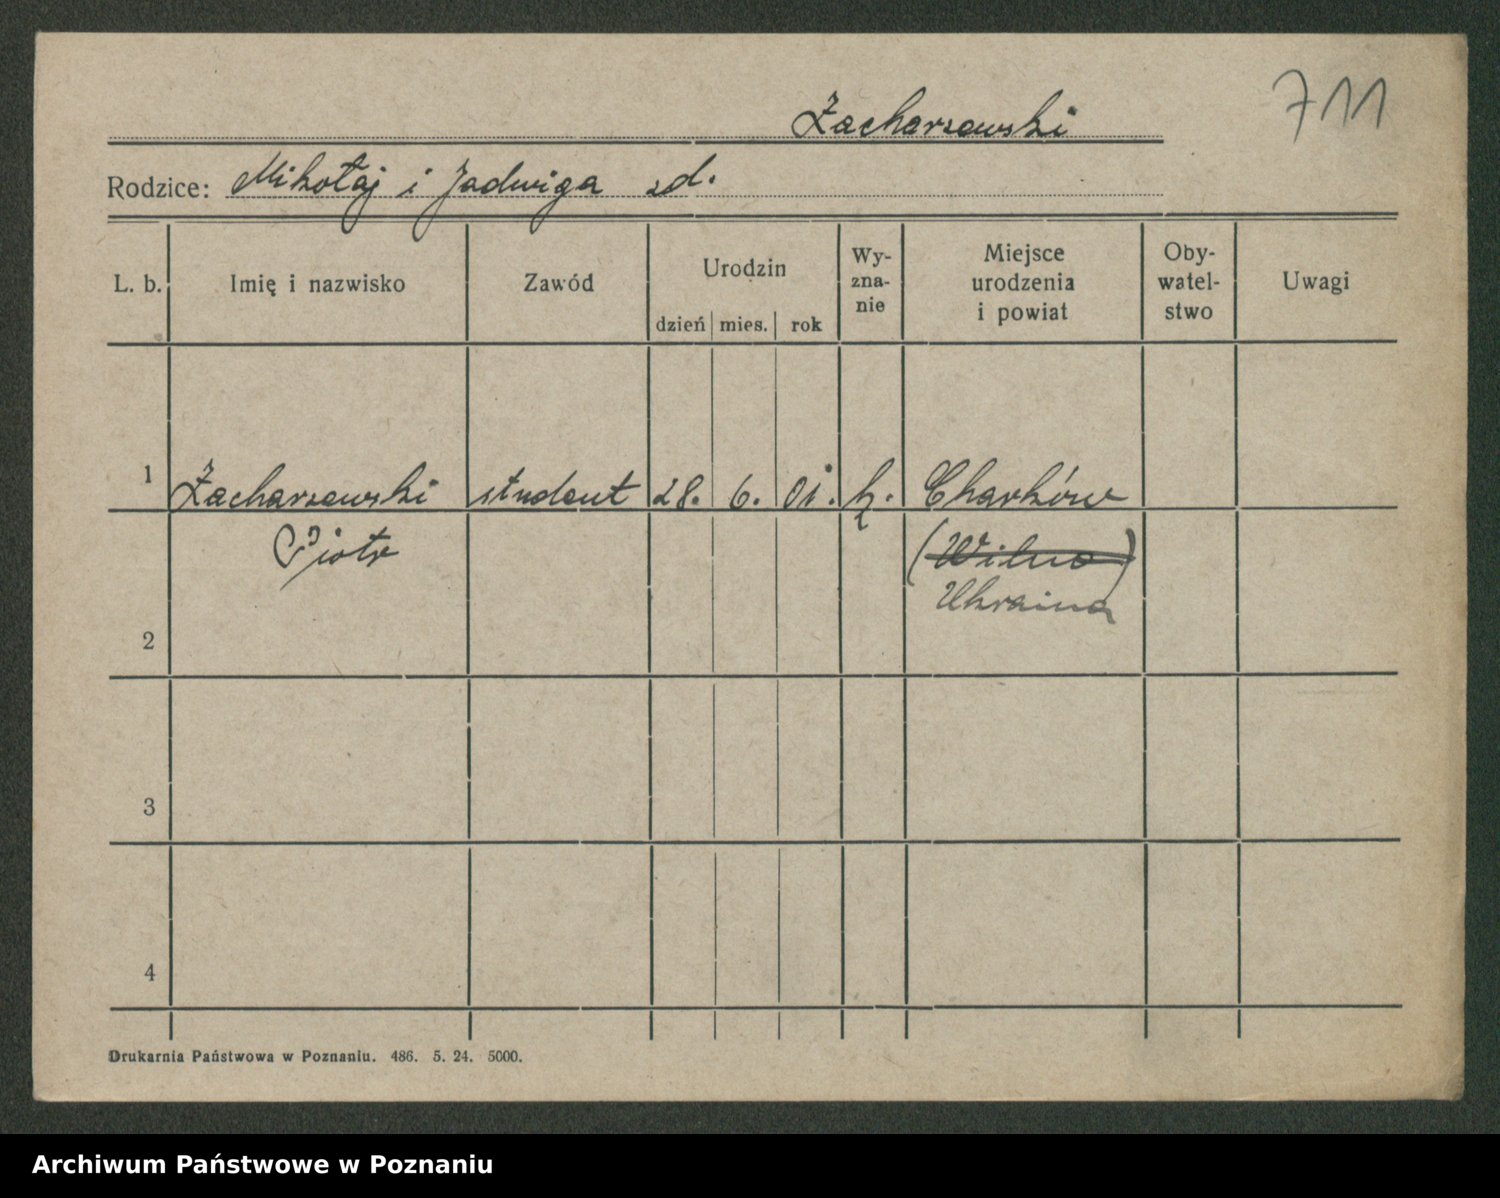 711
Zacharzewski
Rodzice: Mikołaj i Jadwiga zd.
L. b. Imię i nazwisko Zawód Urodzin dzień mies. rok Wy-zna-nie Miejsce urodzenia i powiat Oby-watel-stwo Uwagi
1 Zacharzewski student 28. 6. 01. k. Charków
Piotr (Wilno)
Ukraina
2
3
4
Drukarnia Państwowa w Poznaniu. 486. 5. 24. 5000.
Archiwum Państwowe w Poznaniu